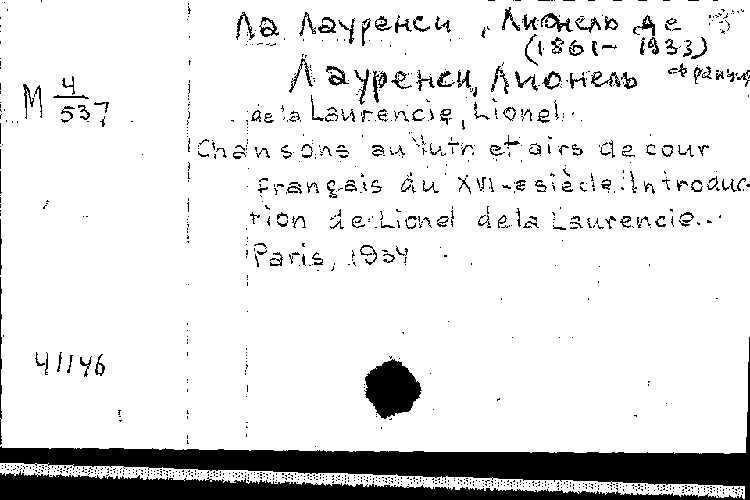 Ла Лауренси, Лионель де
(1861-1933)
Лауренси, Лионель
М 4/537
de la Laurencie, Lionel
Chansons au lutn et airs de cour
Français du XVI-e siècle. Introduc-
tion de Lionel de la Laurencie...
Paris, 1934
41146